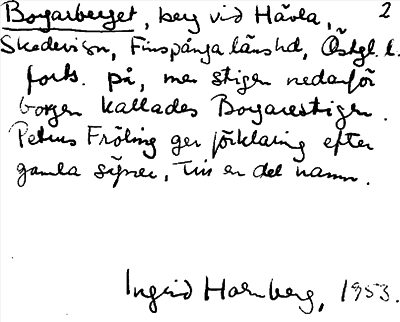 Borgarberget, berg vid Hävla, 2
Skedevi sn, Finspånga länshd, Östgl. l.
forts. på, men stigen nedanför
borgen kallades Borgarestigen.
Petrus Fröling ger förklaring efter
gamla sägner, er del namn.
Ingrid Harnberg, 1953.